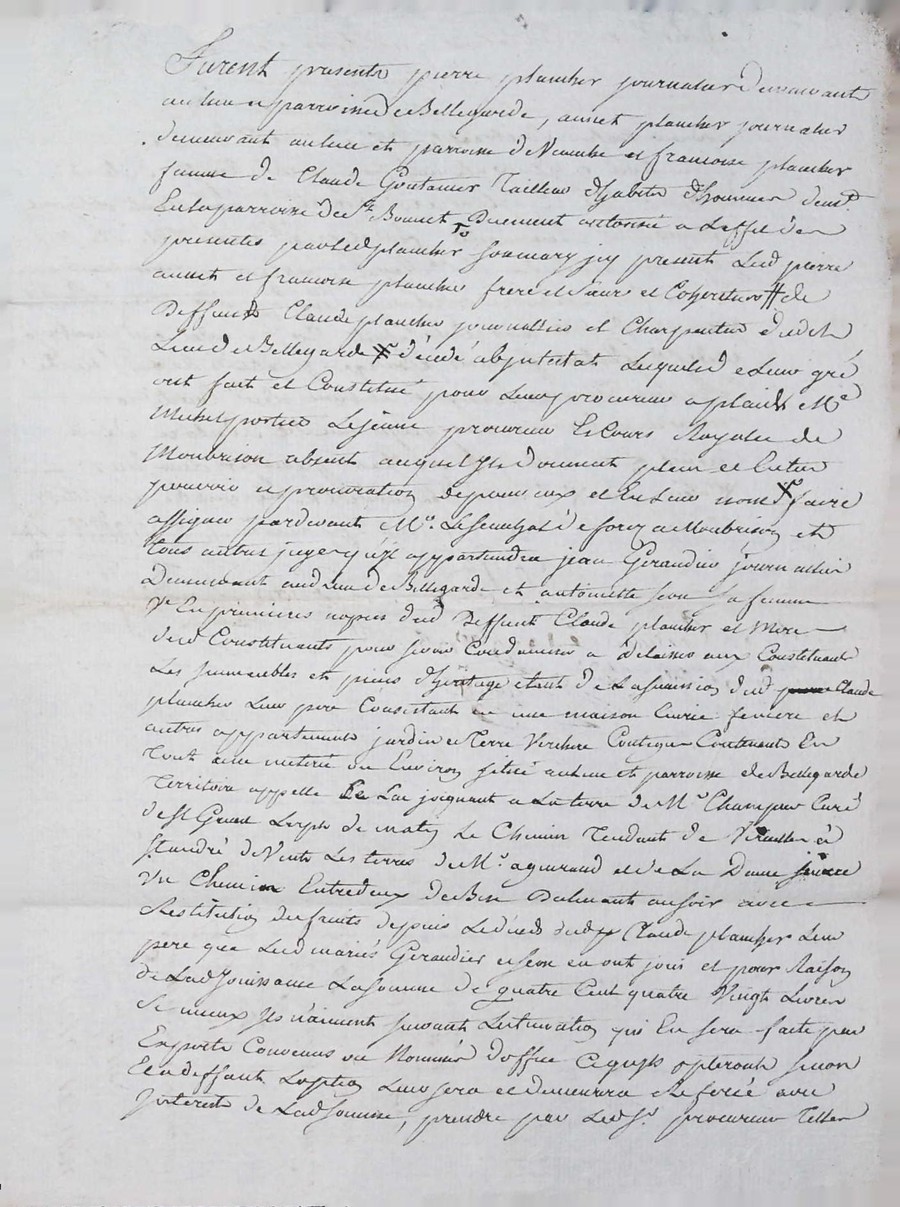 Furent presents pierre plancher journalier demeurant
au lieu et parroisse de Bellegarde, annet plancher journalier
demeurant au lieu et parroisse de et francoise plancher
femme de Claude Goutanier Tailleur d'habits d'hommes demt.
En la parroisse de St. Bonnet Duement authorisé a Leffet des
presentes par led plancher son mary jcy present Led pierre
annet et francoise plancher frere et sœur et Cohéritiers # de
Deffunt Claude plancher journallier et Charpentier dudit
Lieu de Bellegarde décédé abjntestat Lesquels de Leur gré
ont fait et Constitué pour Leur procureur a plaids Me
Michel portier Lejeune procureur Es Cours Royalles de
Monbrison absent auquel jls donnent plein et Entier
pouvoir et procuration de pour eux et En Leur nom faire
assigner pardevant Mr. Le Senechal de forez a Monbrison et
tous autres juges qu'il appartiendra jean Giraudier journallier
Demeurant aud Lieu de Bellegarde et antoinette seon sa femme
Ve En premieres nopces dud Deffunt Claude plancher et Mere
desd Constituants pour se voir Condamner a délaisser aux Constituants
Les jmmeubles et pieces d'héritage etant de La succession dud Claude
plancher Leur pere Consistant en une maison Ecurie feniere et
autres appartements jardin et Terre Verchere Contigue Contenants En
Tout une meterée ou Environ situé au lieu et parroisse de Bellegarde
Territoire appellé Le Lac joignant a La terre de Mr. Champier Curé
de St Le Chemin Tendant de a
St andré de Vente Les terres de Mr. et de La Dame
Un Chemin Entredeux de Bise Dalmant au soir avec
Restitution des fruits depuis Le décès dud Claude plancher Leur
pere que Lesd mariés Giraudier et seon en ont joui et pour Raison
de Lad Jouissance La somme de quatre Cent quatre Vingt Livres
Si mieux jls n'aiment suivant Lestimation qui En sera faite par
Experts Convenus ou Nommés d'office Ce qu'jls opteront sinon
Et a deffaut Loption Leur sera et demeurera Referée avec
Jnterets de Lad somme, prendre par Led Sr. procureur Telles